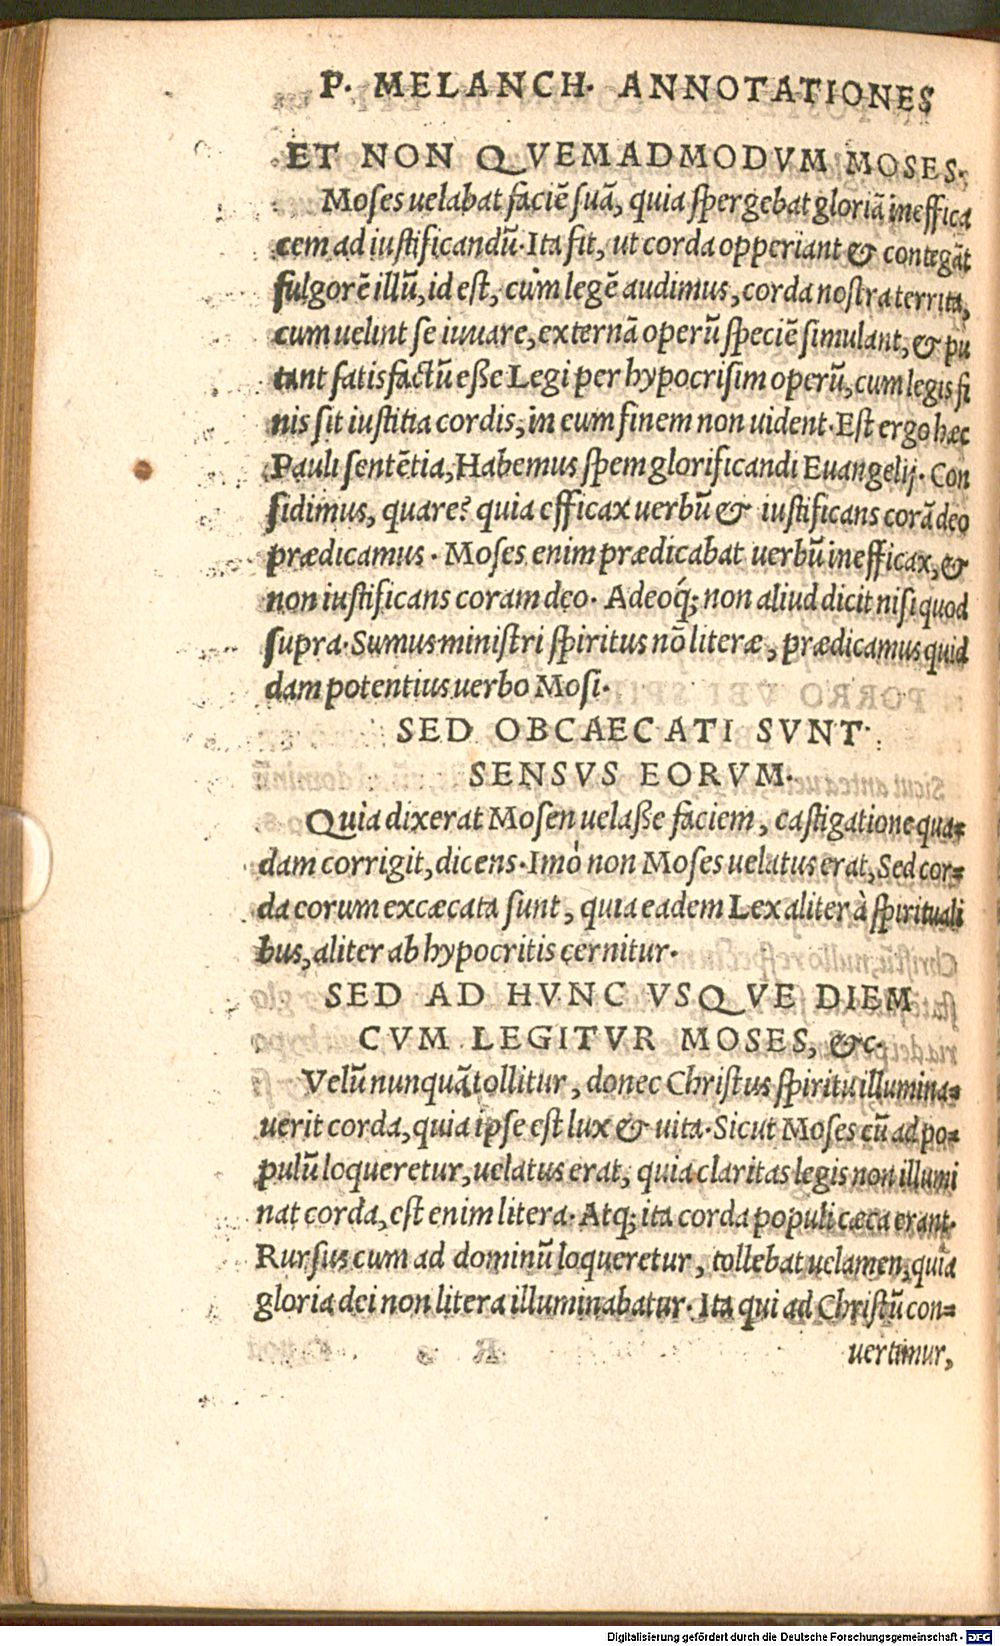 P. MELANCH. ANNOTATIONES
ET NON QVEMADMODVM MOSES.
Moses uelabat faciē suā, quia spergebat gloriā ineffica
cem ad iustificandū. Ita fit, ut corda opperiant & contegāt
fulgorē illū, id est, cùm legē audimus, corda nostra territa,
cum uelint se iuuare, externā operū speciē simulant, & pu
tant satisfactū eße Legi per hypocrisim operū, cum legis fi
nis sit iustitia cordis, in eum finem non uident. Est ergo hæc
Pauli sentētia, Habemus spem glorificandi Euangelij. Con
fidimus, quare? quia efficax uerbū & iustificans corā deo
prædicamus. Moses enim prædicabat uerbū inefficax, &
non iustificans coram deo. Adeoq́; non aliud dicit nisi quod
supra. Sumus ministri spiritus nō literæ, prædicamus quid
dam potentius uerbo Mosi.
SED OBCAECATI SVNT
SENSVS EORVM.
Quia dixerat Mosen uelaße faciem, castigatione qua=
dam corrigit, dicens. Imò non Moses uelatus erat, Sed cor=
da eorum excæcata sunt, quia eadem Lex aliter à spirituali
bus, aliter ab hypocritis cernitur.
SED AD HVNC VSQVE DIEM
CVM LEGITVR MOSES, &c.
Velū nunquā tollitur, donec Christus spiritu illumina=
uerit corda, quia ipse est lux & uita. Sicut Moses cū ad po=
pulū loqueretur, uelatus erat, quia claritas legis non illumi
nat corda, est enim litera. Atq; ita corda populi cæca erant.
Rursus cum ad dominū loqueretur, tollebat uelamen, quia
gloria dei non litera illuminabatur. Ita qui ad Christū con=
uertimur,
Digitalisierung gefördert durch die Deutsche Forschungsgemeinschaft - DFG